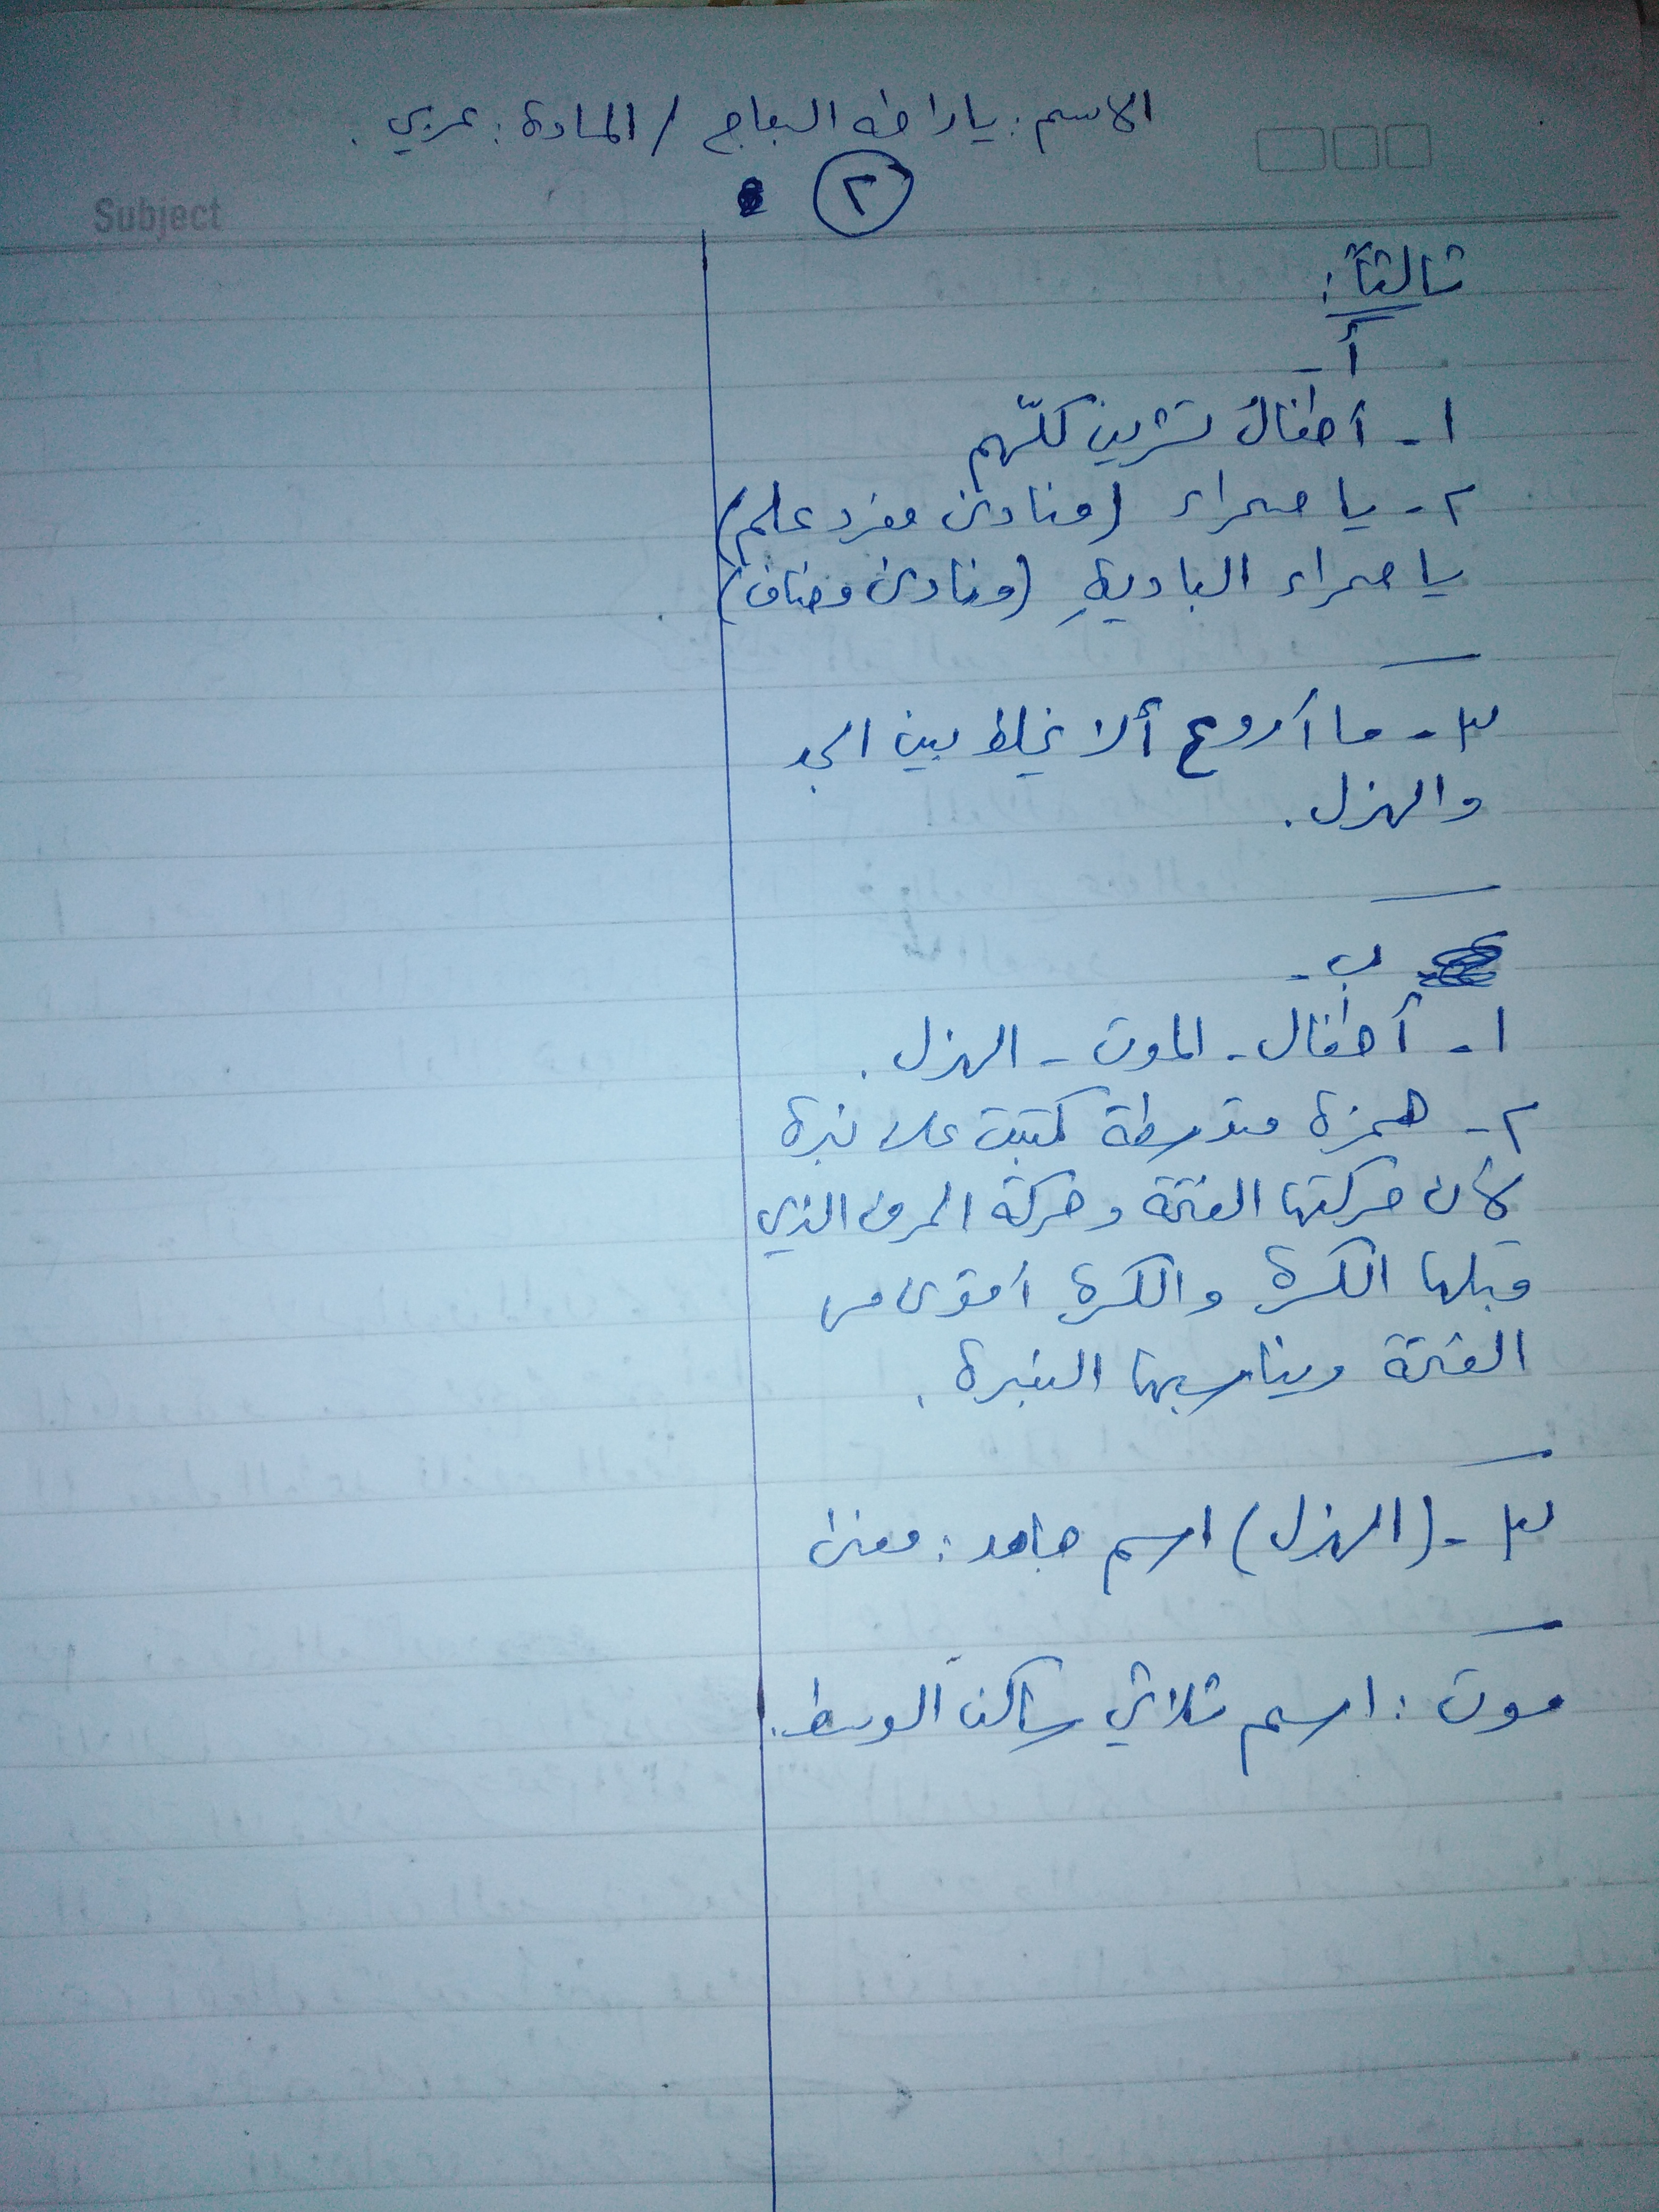 الاسم: يارا طه البعاج / المادة: عربي.
٢
Subject
ثالثاً:
أ -
١ - أطفالُ تشرين كلّهم
٢ - يا صحراء (منادى مفرد علم)
يا صحراء الباديةِ (منادى مضاف)
٣ - ما أروع ألا يخلط بين الجد
والهزل.
ب -
١ - أطفال - الموت - الهزل.
٢ - همزة متوسطة كتبت على نبرة
لأن حركتها الفتحة وحركة الحرف الذي
قبلها الكسرة والكسرة أقوى من
الفتحة ويناسبها النبرة.
٣ - (الهزل) اسم جامد: معنى
موت: اسم ثلاثي ساكن الوسط.